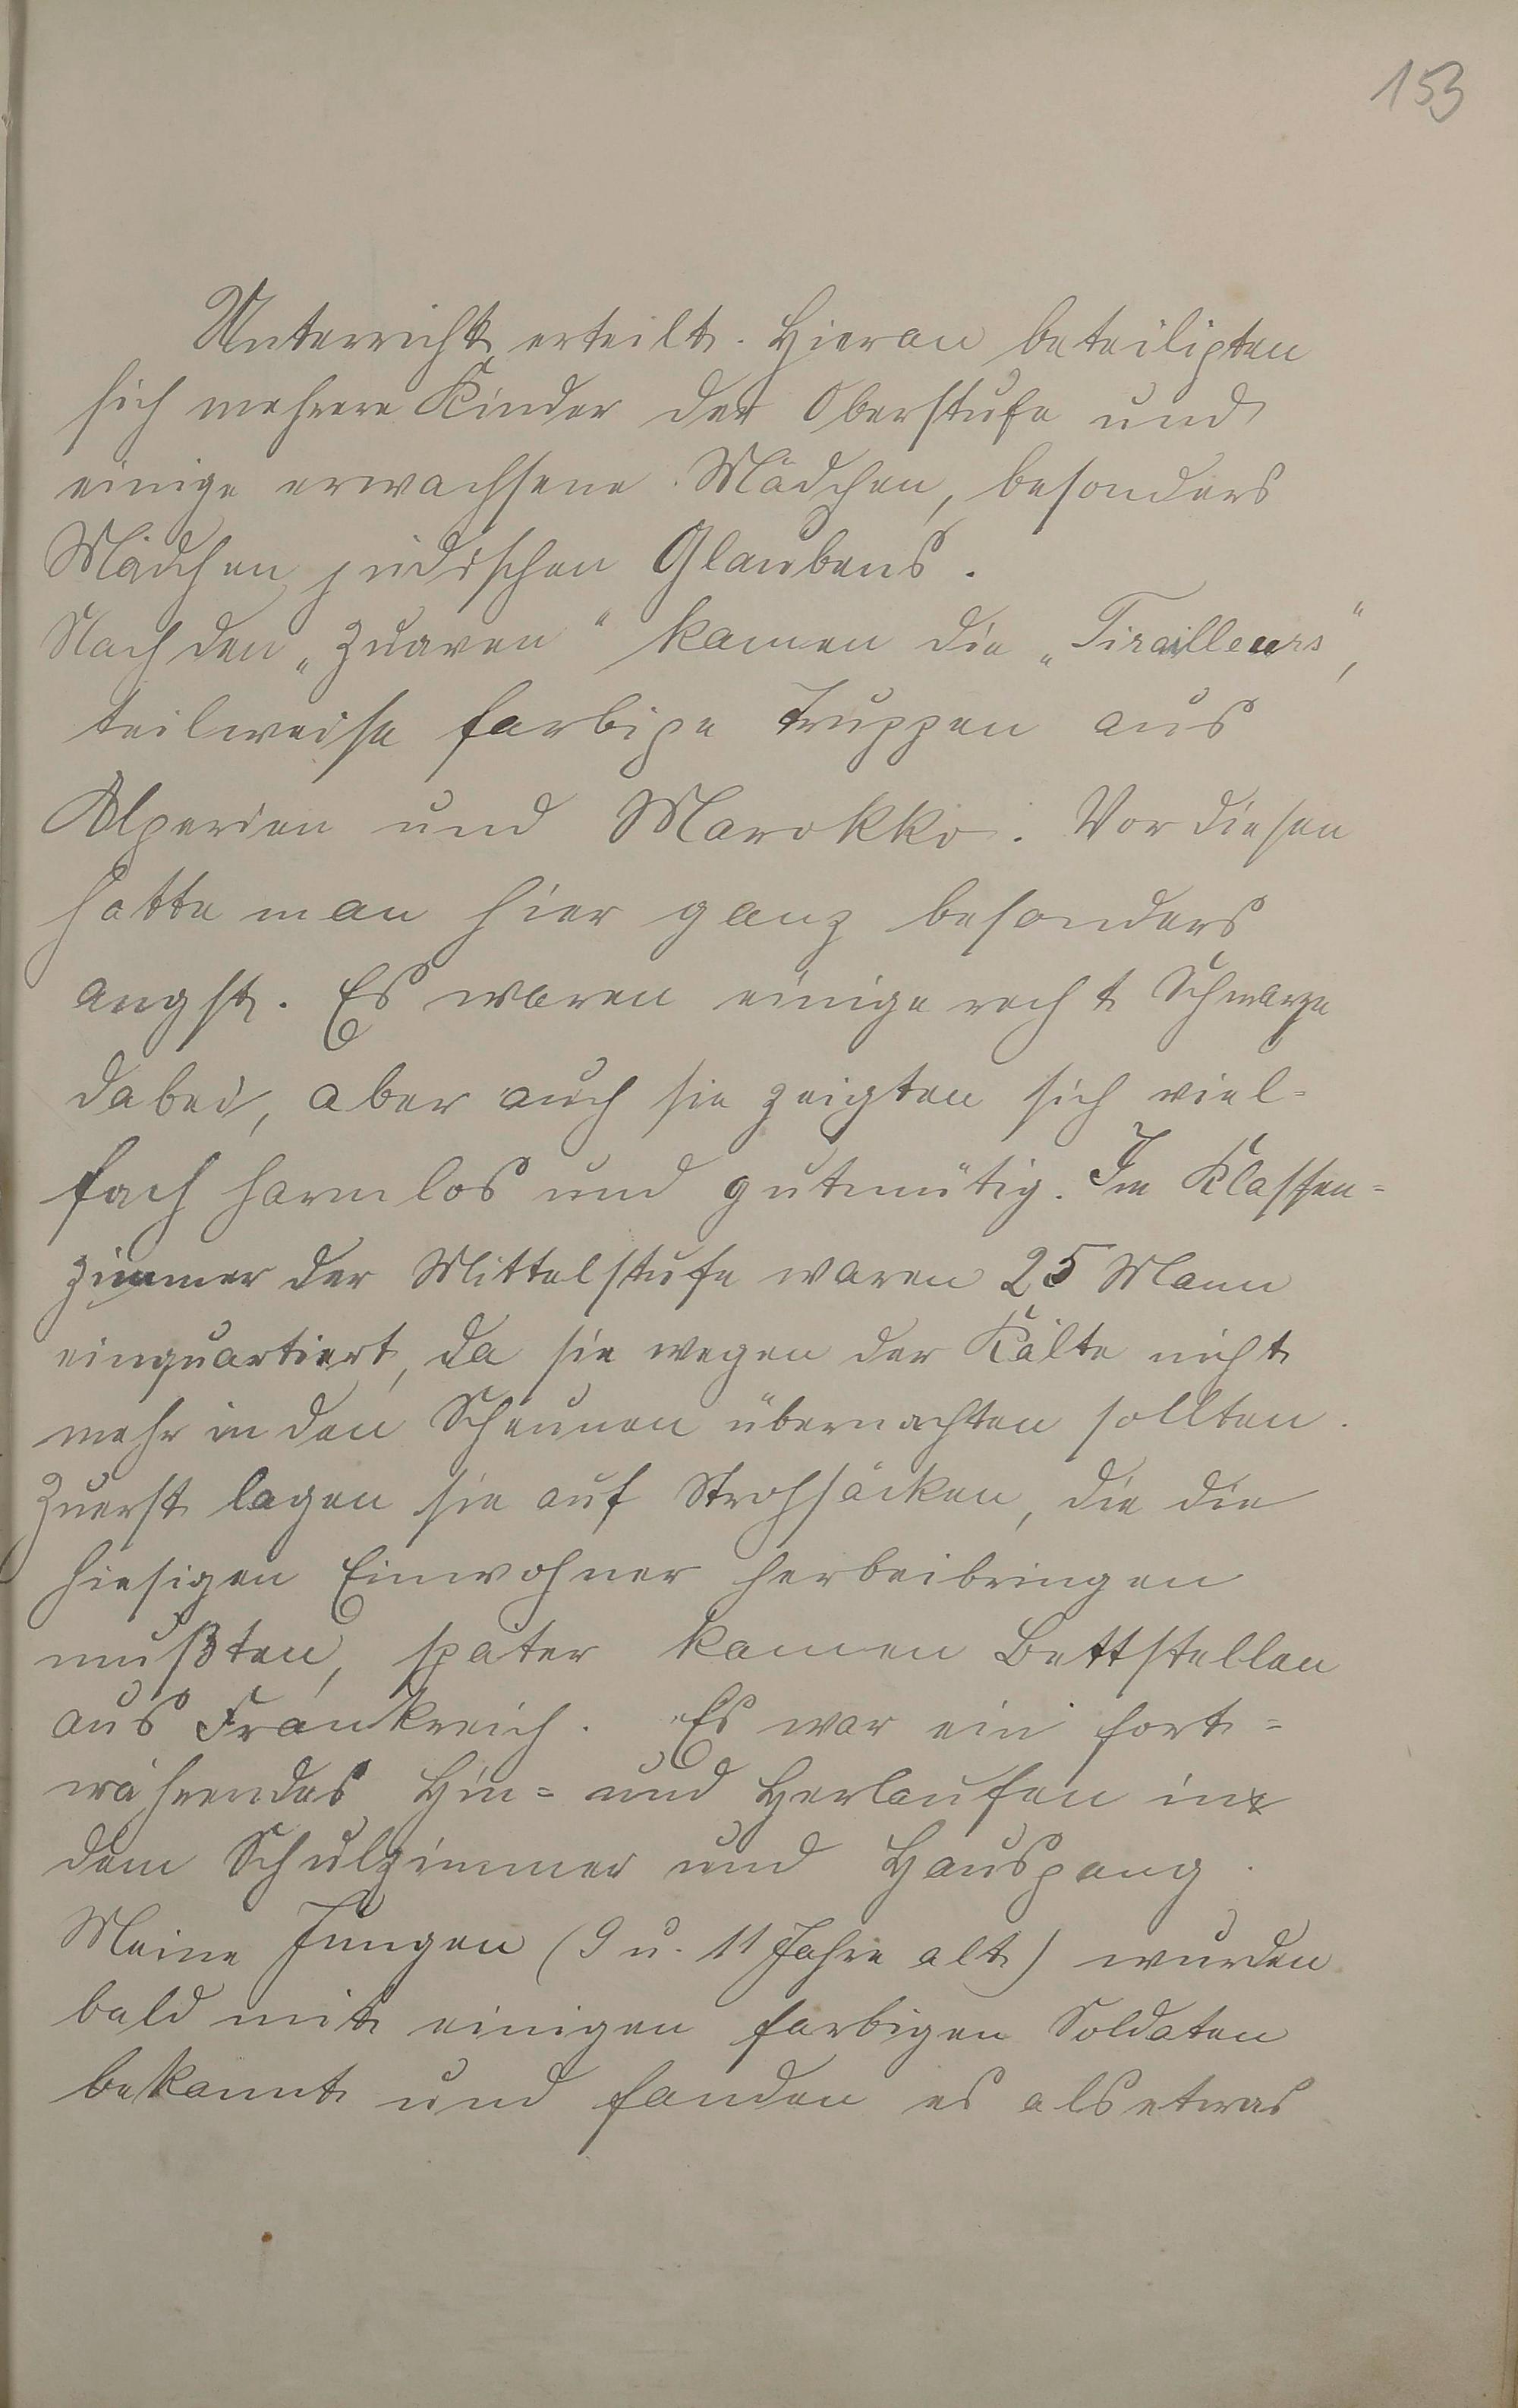 153
Unterricht erteilt. Hieran beteiligten
sich mehrere Kinder der Oberstufe und
einige erwachsene Mädchen, besonders
Mädchen jüdischen Glaubens.
Nach den „Zuaven" kamen die „Tirailleurs",
teilweise farbige Truppen aus
Algerien und Marokko. Vor diesen
hatte man hier ganz besonders
angst. Es waren einige recht Schwarze
dabei, aber auch sie zeigten sich viel-
fach harmlos und gutmütig. Im Klassen-
zimmer der Mittelstufe waren 25 Mann
einquartiert, da sie wegen der Kälte nicht
mehr in den Scheunen übernachten sollten.
Zuerst lagen sie auf Strohsäcken, die die
hiesigen Einwohner herbeibringen
mußten, später kamen Bettstellen
aus Frankreich. Es war ein fort-
währendes Hin- und Herlaufen in
dem Schulzimmer und Hausgang.
Meine Jungen (9 u. 11 Jahre alt) wurden
bald mit einigen farbigen Soldaten
bekannt und fanden es als etwas